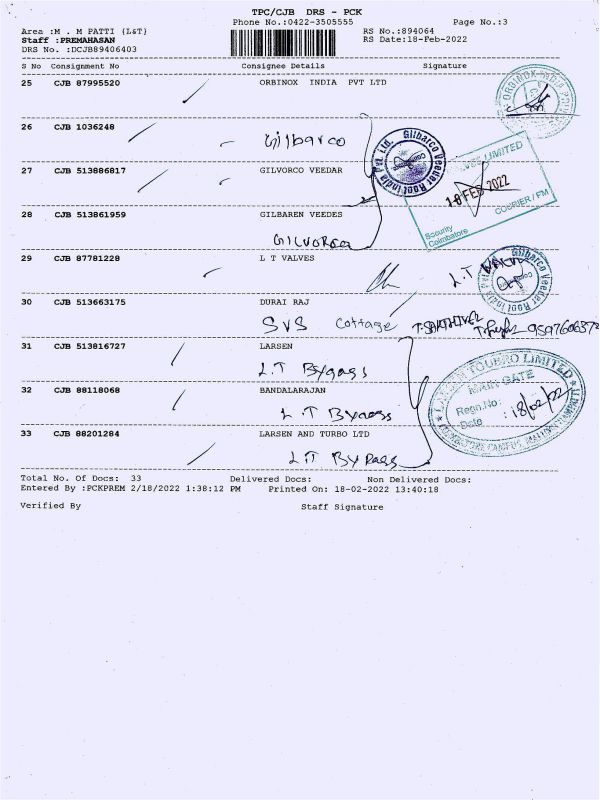 TPC/CJB DRS - PCK
Phone No.:0422-3505555 Page No.:3
Area :M . M PATTI (L&T) RS No.:894064
Staff :PREMAHASAN RS Date:18-Feb-2022
DRS No. :DCJB89406403
S No Consignment No Consignee Details Signature
25 CJB 87995520 ORBINOX INDIA PVT LTD
ORBINOX INDIA
26 CJB 1036248
Gilbarco
Gilbarco Veeder Root India Pvt. Ltd.
27 CJB 513886817 GILVORCO VEEDAR
LIMITED
18 FEB 2022
COURIER / FM
Security
Coimbatore
28 CJB 513861959 GILBAREN VEEDES
GILVORCO
29 CJB 87781228 L T VALVES
L.T VALVE
Gilbarco Veeder Root India
30 CJB 513663175 DURAI RAJ
SVS Cottage T.SAKTHIVEL
31 CJB 513816727 LARSEN
L.T Bypass
LARSEN & TOUBRO LIMITED
MAIN GATE
Regn.No:
Date : 18/02/22
32 CJB 88118068 BANDALARAJAN
L.T Bypass
33 CJB 88201284 LARSEN AND TURBO LTD
L.T Bypass
Total No. Of Docs: 33 Delivered Docs: Non Delivered Docs:
Entered By :PCKPREM 2/18/2022 1:38:12 PM Printed On: 18-02-2022 13:40:18
Verified By Staff Signature